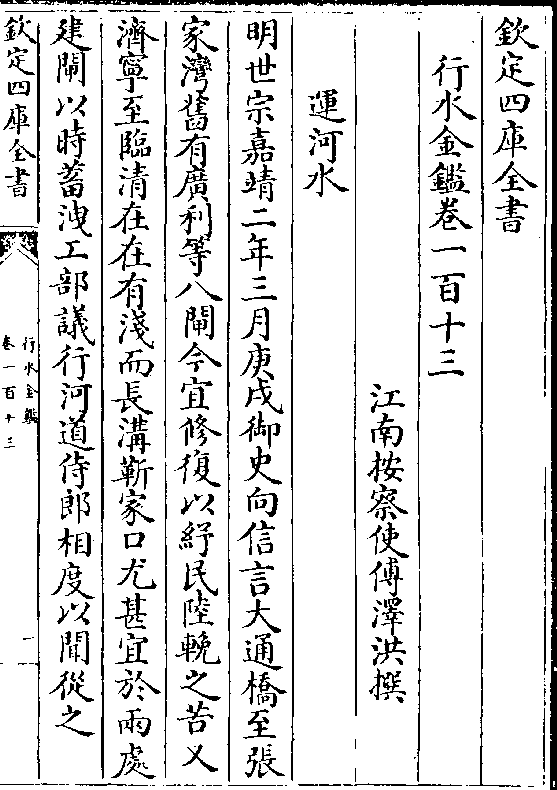 欽定四庫全書
行水金鑑卷一百十三
江南按察使傅澤洪撰
運河水
明世宗嘉靖二年三月庚戌御史向信言大通橋至張
家灣舊有廣利等八閘今宜修復以紓民陸輓之苦又
濟寧至臨清在在有淺而長溝靳家口尤甚宜於兩處
建閘以時蓄洩工部議行河道侍郎相度以聞從之
欽定四庫全書
行水金鑑
卷一百十三
一